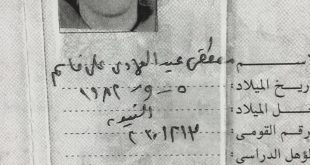 ـســم مصطفى عبد الهادى على قاسم
ريخ الميلاد: ٥ - ٩ - ١٩٨٢
ـل الميلاد:
رقم القومى: ٢٠١٢١٣
ؤهل الدراسى: